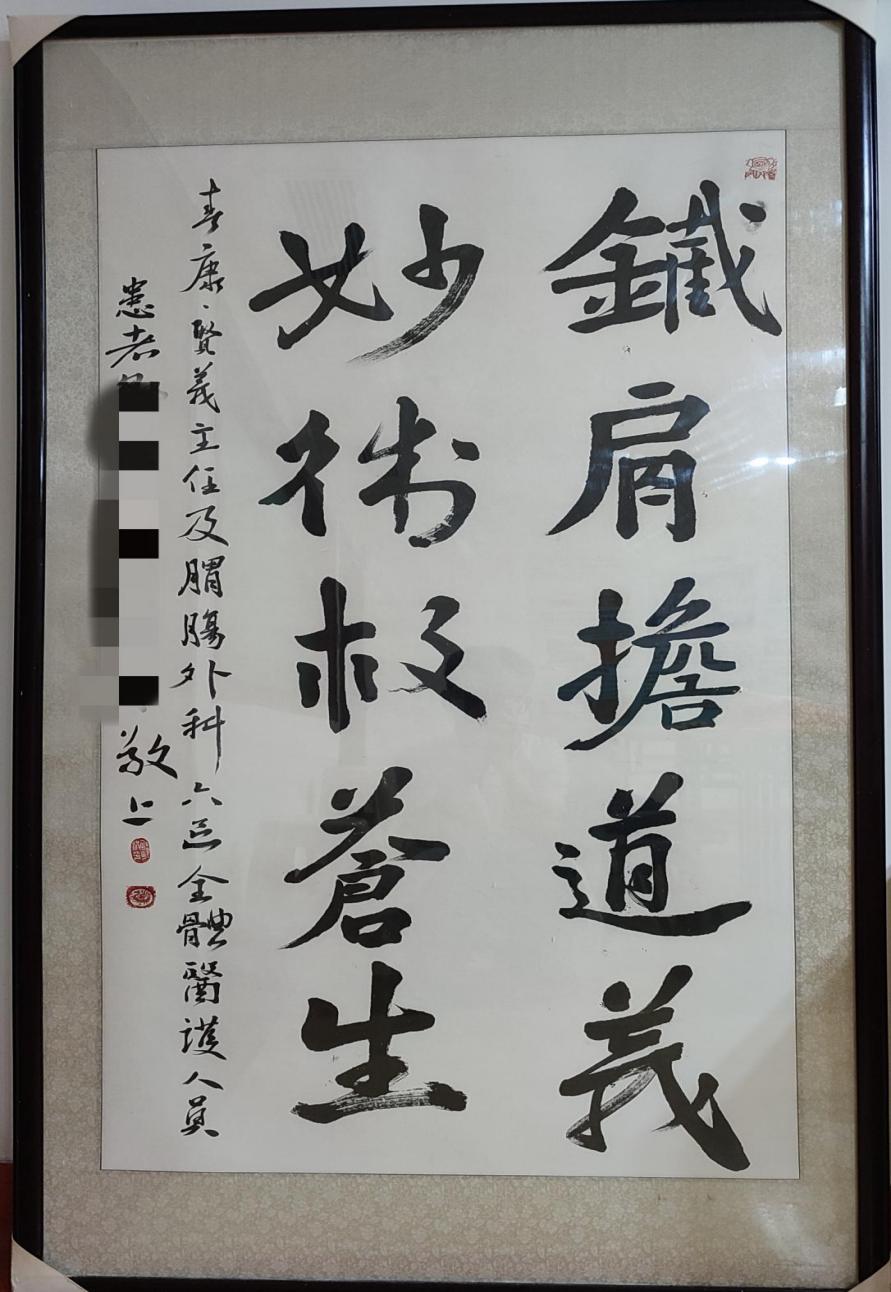 鐵肩擔道義
妙術救蒼生
春康、賢義主任及胃腸外科六區全體醫護人員
患者
敬上